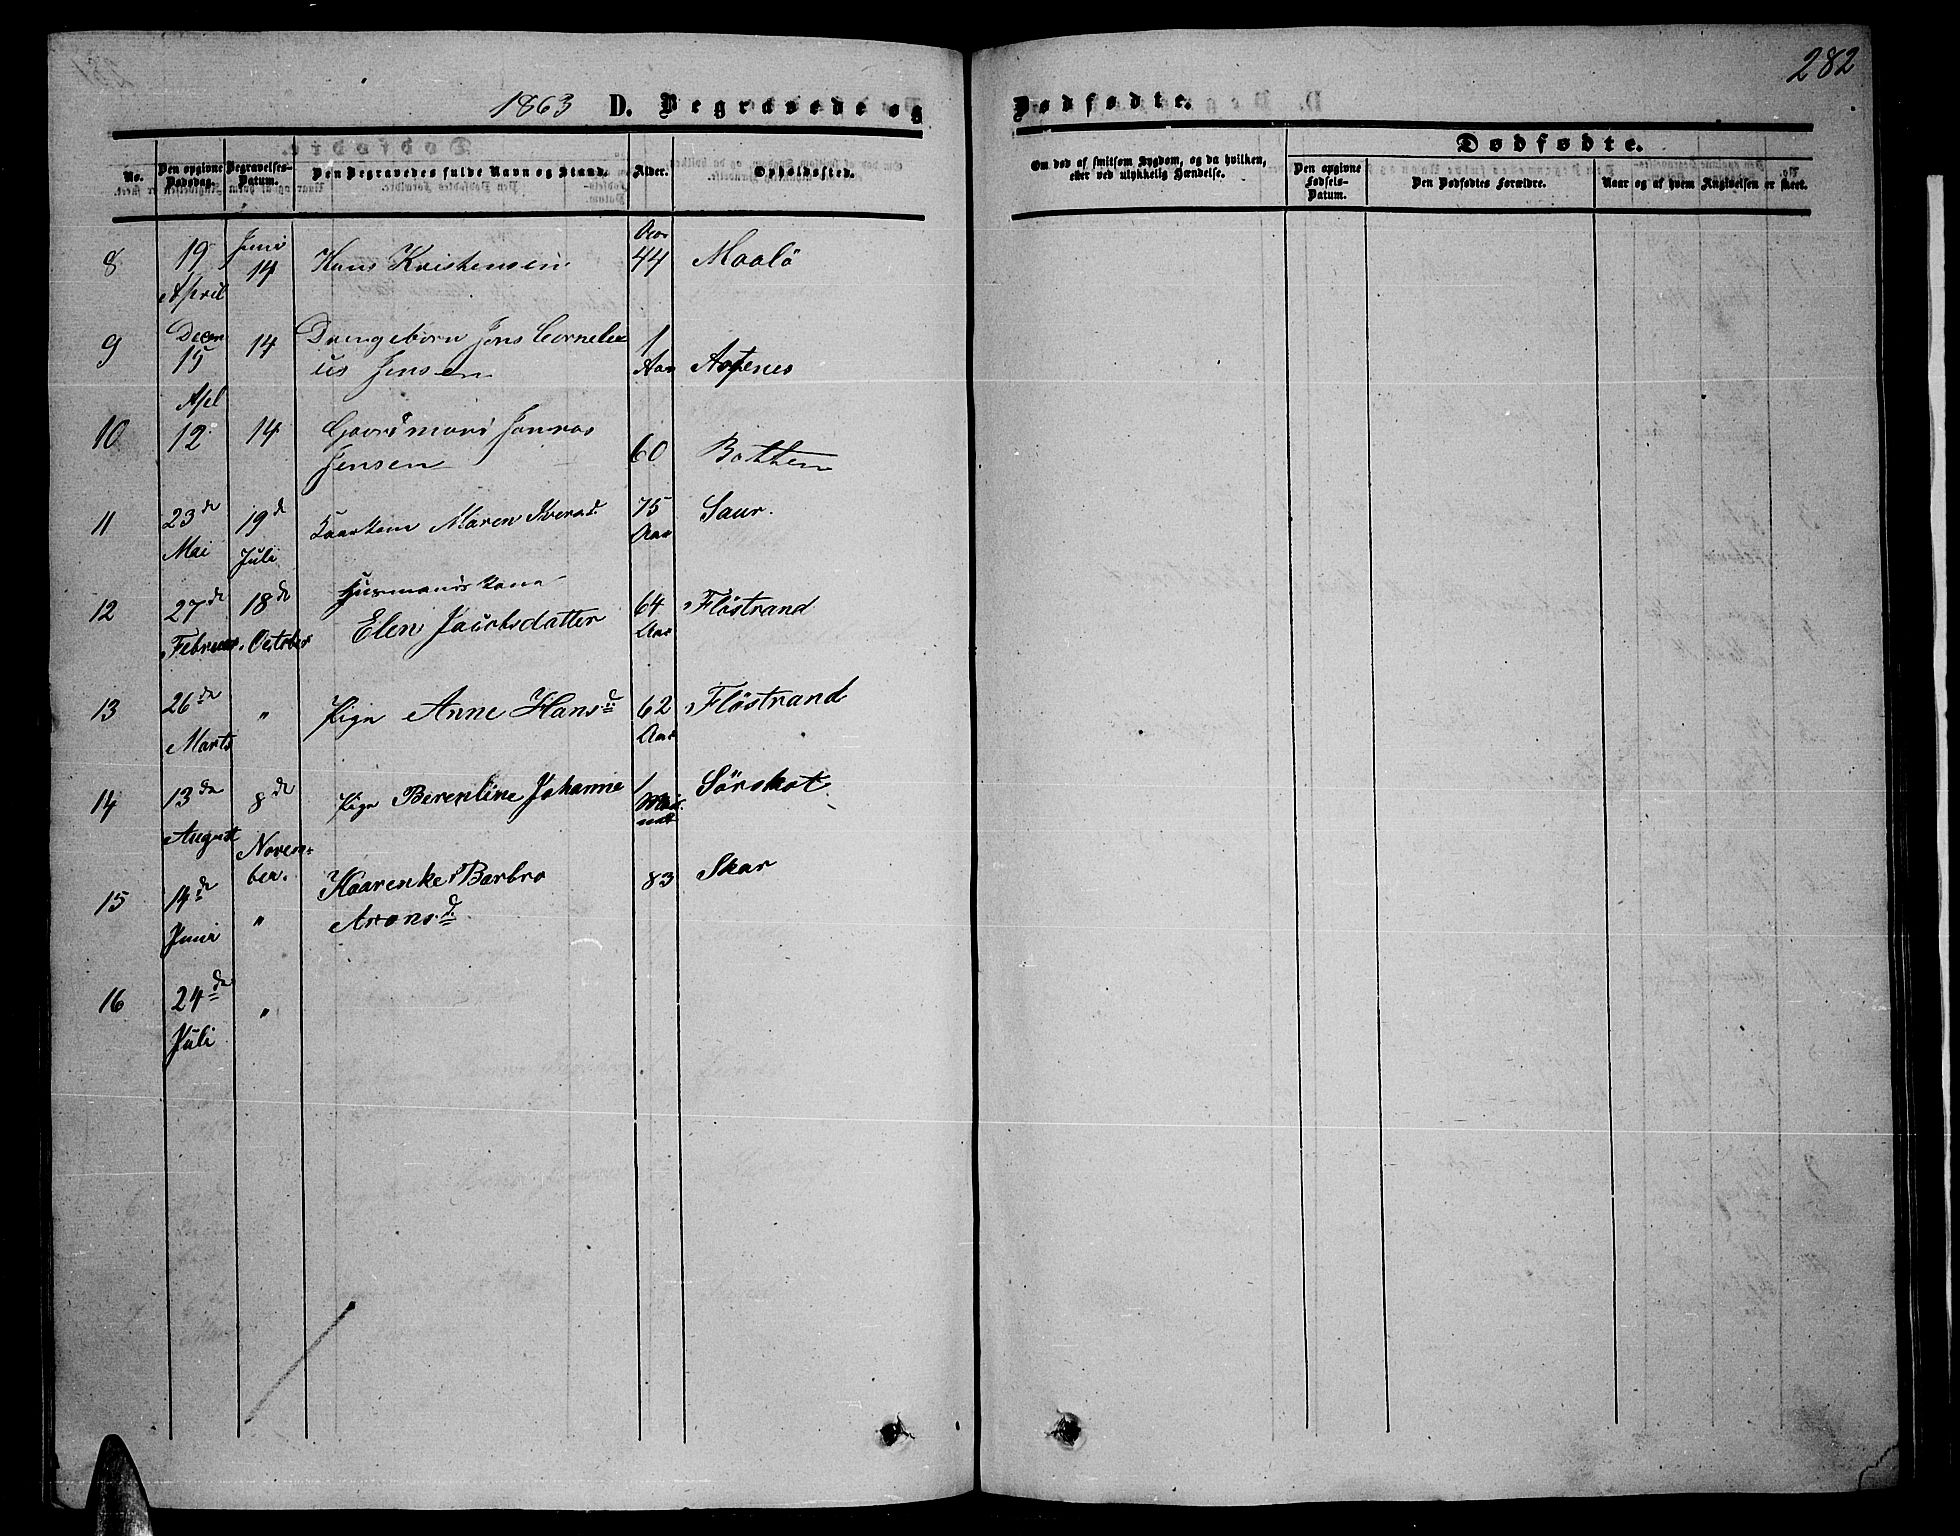 282
1863 D. Begravede og Dødfødte.
No. Den opgivne Dødsdag. Begravelses-Datum. Den Begravedes fulde Navn og Stand. Alder. Opholdssted.
Om død af smitsom Sygdom, og da hvilken, eller ved ulykkelig Hændelse.
Dødfødte.
Den opgivne Fødsels-Datum. Den Dødfødtes Forældre. Naar og af hvem Angivelsen er skeet.
8 19 April Juni 14 Hans Kristensen Aar 44 Maalö
9 Decem 15 14 Drengebörn Jens Cornelei
us Jensen 1 Aar
10 Apl 12 14 Jensen 60 Botten
11 23de Mai 19d Juli Maren 75 Aar Saur.
12 27de Februar 18de October Husmands Kone
Elen Jacobsdatter 64 Aar Flöstrand
13 26de Marts " Pige Anne Hansd 62 Aar Flöstrand
14 13de August 8de November. Pige Berentine Johanne 1 Sörskot
15 14de Juni " Kaarenke Barbro
Aronsd. 83 Skar
16 24de Juli "